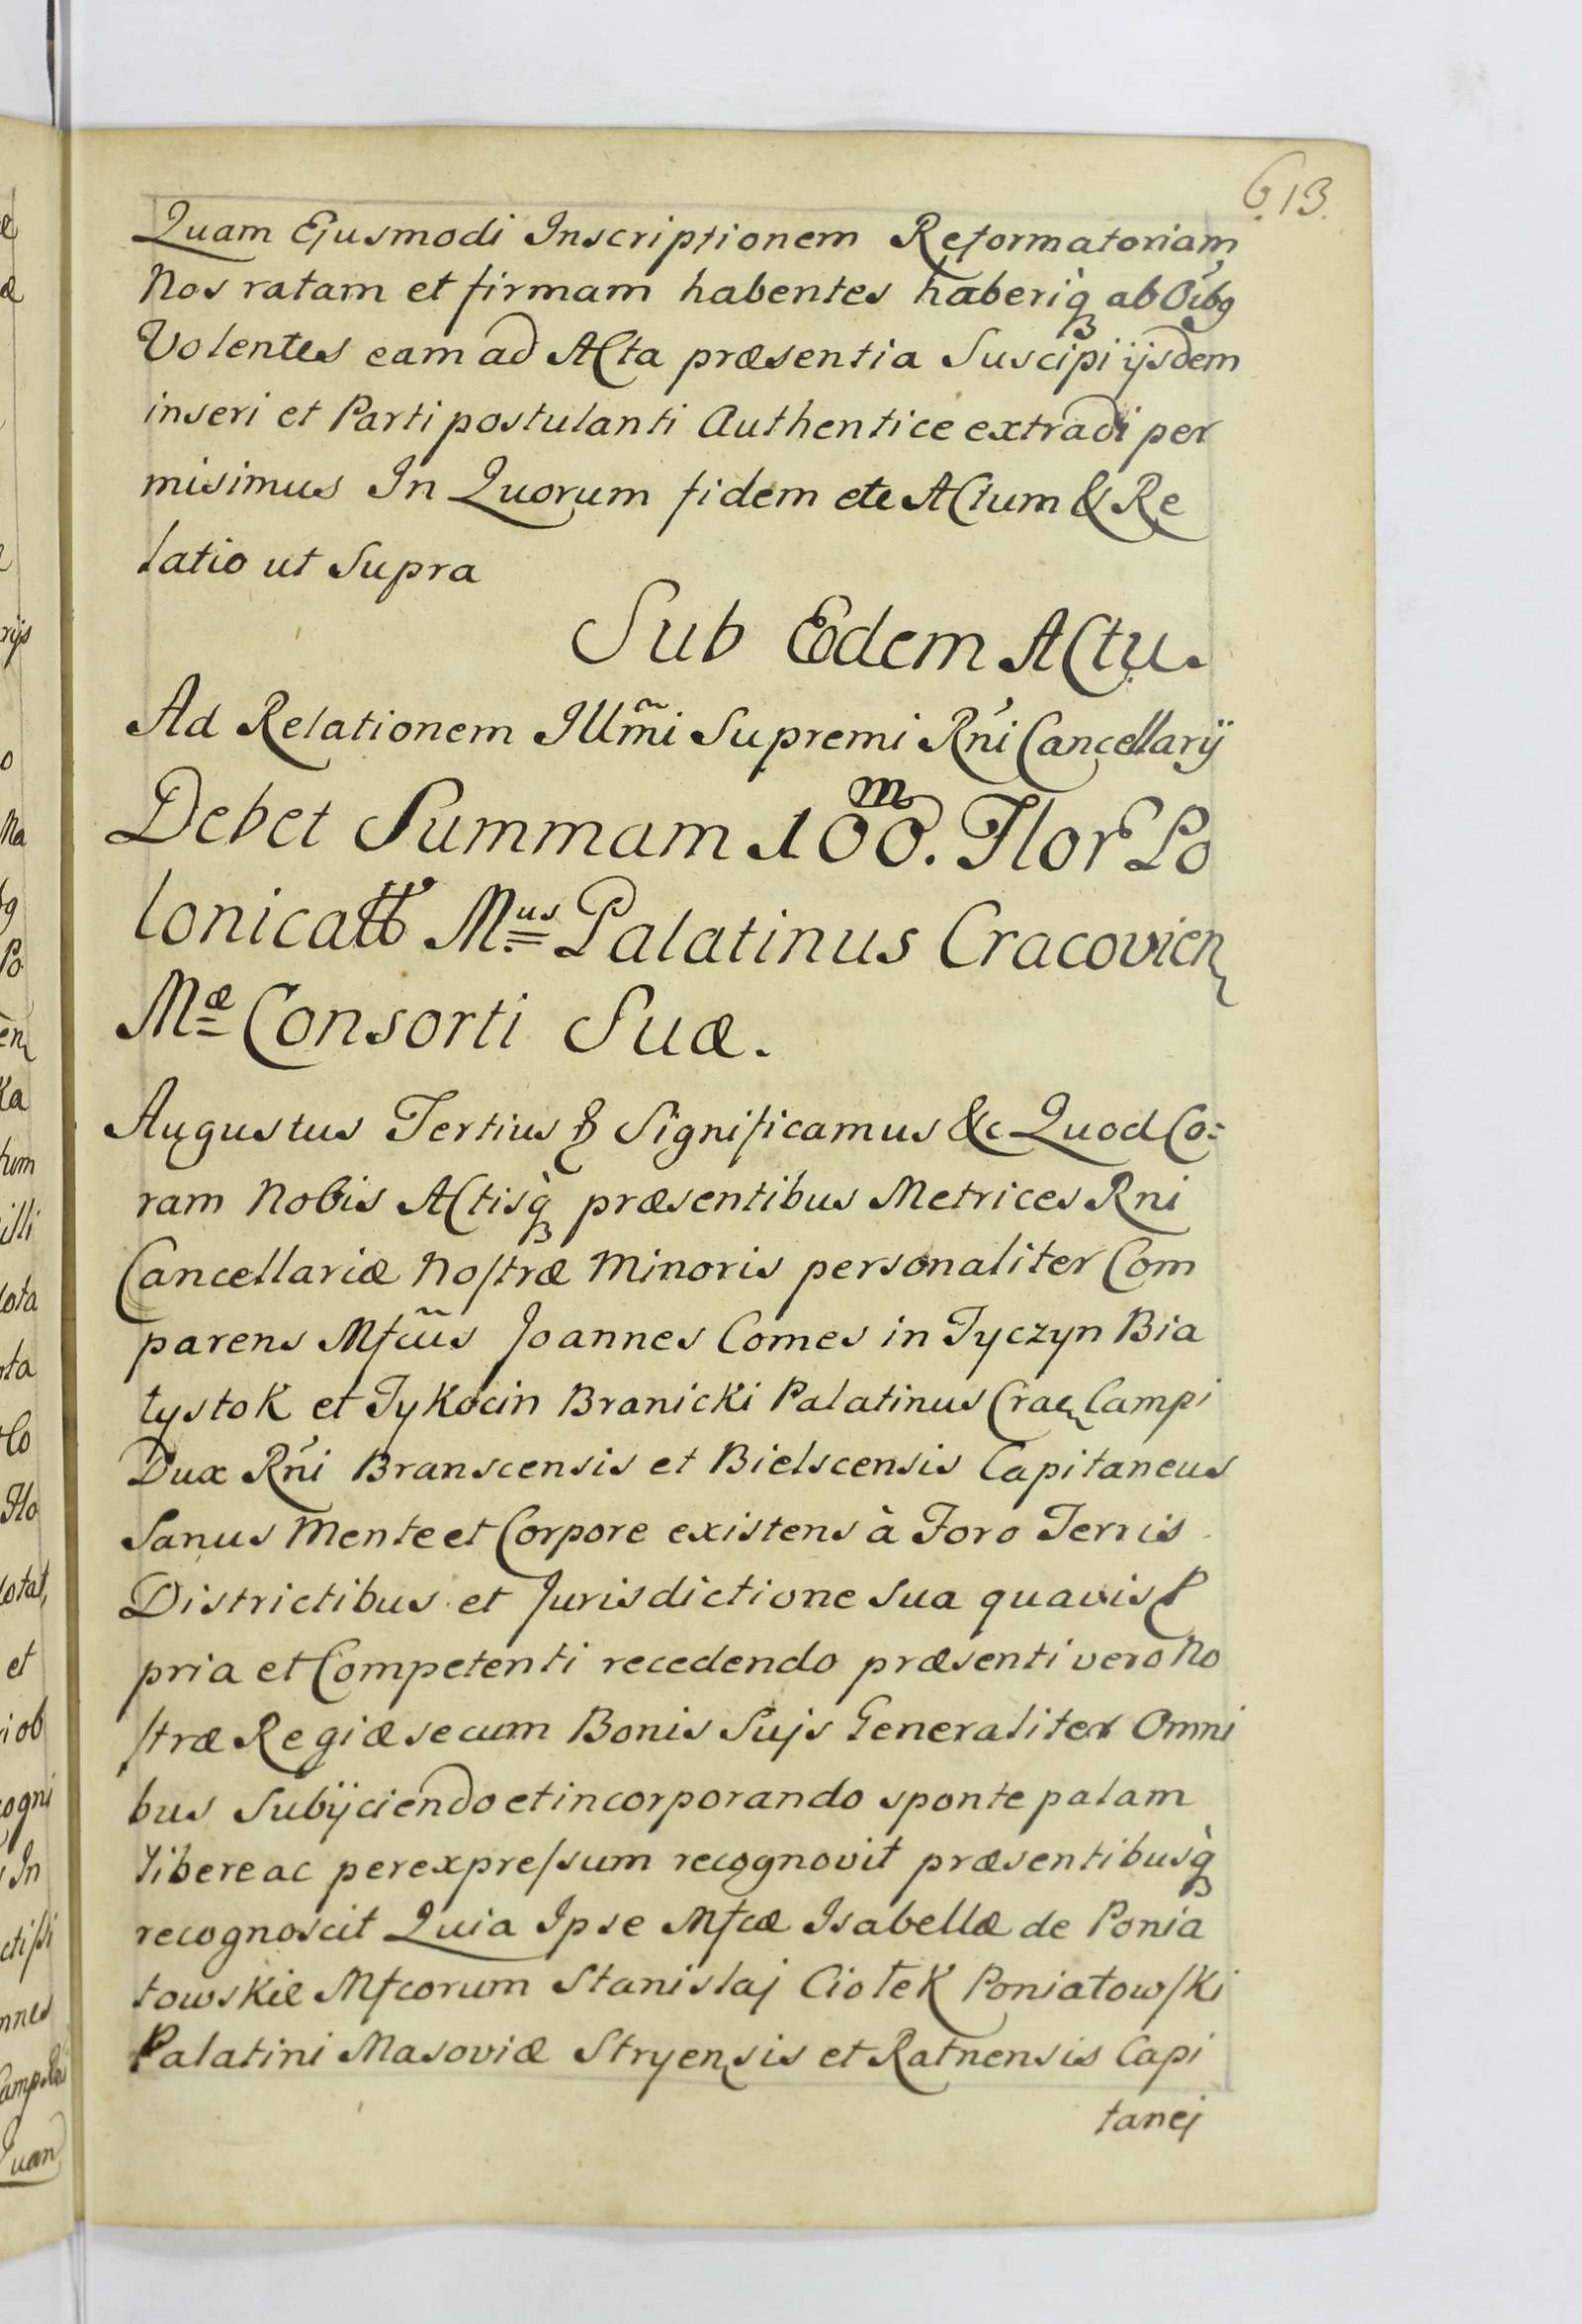 613.
Quam Ejusmodi Inscriptionem Reformatoriam
Nos ratam et firmam habentes haberiq̀ ab Oibg
Volentes eam ad Acta præsentia Suscipi ijsdem
inseri et Parti postulanti Authentice extradi per
misimus In Quorum fidem etc Actum & Re
latio ut Supra
Sub Eodem Actu.
Ad Relationem Illm̃i Supremi Rńi Cancellarÿ
Debet Summam 100.ᵐ Flor Po
lonica Mᵘˢ Palatinus Cracovien
Mæ Consorti Suæ.
Augustus Tertius & Significamus &c Quod Co:
ram Nobis Actisq̀ præsentibus Metrices Rni
Cancellariæ Nostræ Minoris personaliter Com
parens Mfcũs Joannes Comes in Tyczyn Bia
łystok et Tykocin Branicki Palatinus Crac Campi
Dux Rńi Branscensis et Bielscensis Capitaneus
Sanus Mente et Corpore existens à Foro Terris
Districtibus et Jurisdictione sua quavis P
pria et Competenti recedendo præsenti vero No
stræ Regiæ secum Bonis Sujs Generaliter Omni
bus Subÿciendo et incorporando sponte palam
libere ac per expressum recognovit præsentibusq̀
recognoscit Quia Ipse Mfcæ Isabellæ de Ponia
towskie Mfcorum Stanislaj Ciołek Poniatowski
Palatini Masoviæ Stryensis et Ratnensis Capi
tanej